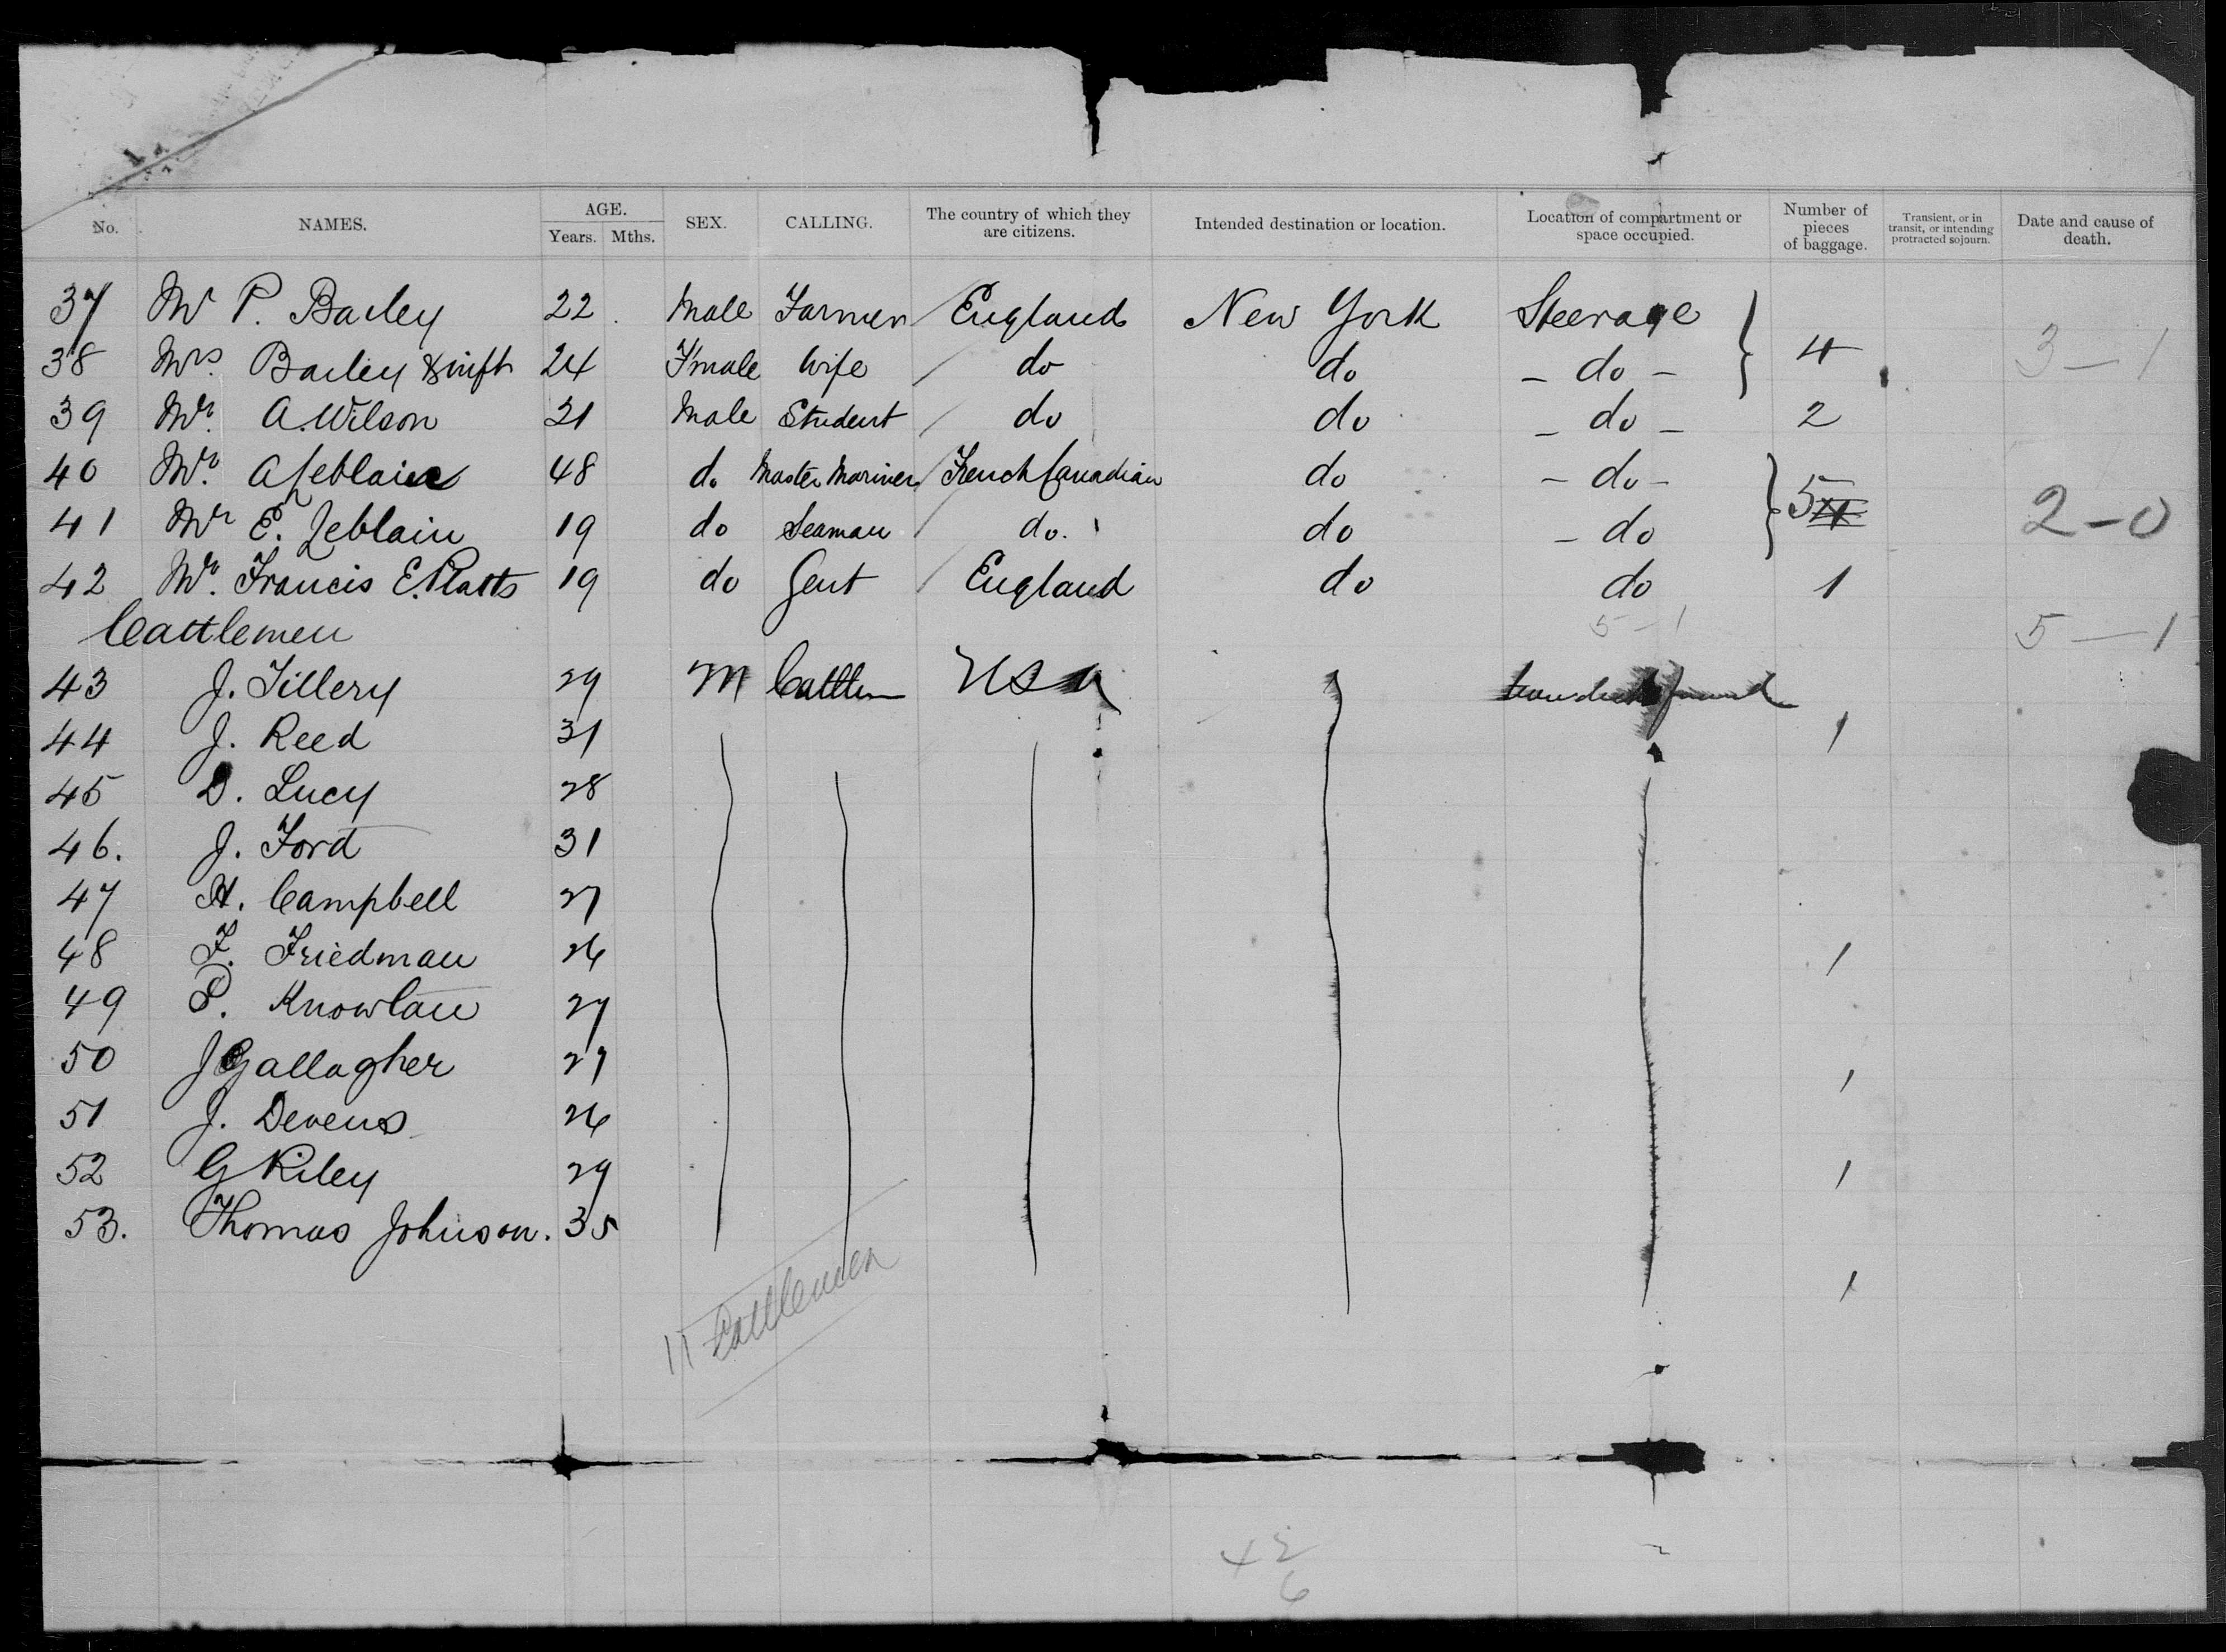 No. NAMES. AGE. Years. Mths. SEX. CALLING. The country of which they are citizens. Intended destination or location. Location of compartment or space occupied. Number of pieces of baggage. Transient, or in transit, or intending protracted sojourn. Date and cause of death.
37 Mr P. Bailey 22 Male Farmer England New York Steerage
38 Mrs. Bailey & inft 24 F'male Wife do do - do - 4 3-1
39 Mr. A. Wilson 21 Male Student do do - do - 2
40 Mr. A Jeblain 48 do Master Mariner French Canadian do - do -
41 Mr E. Jeblain 19 do Seaman do. do - do 5 2-0
42 Mr. Francis E. Platts 19 do Gent England do do 1
Cattlemen 5-1 5-1
43 J. Tillery 29 M Cattlem USA
44 J. Reed 31 1
45 D. Lucy 28
46. J. Ford 31
47 H. Campbell 27
48 F. Friedman 26 1
49 P. Knowlan 27
50 J Gallagher 27 1
51 J. Devens 26
52 G Riley 29 1
53. Thomas Johnson. 35
1
11 Cattlemen
42
6